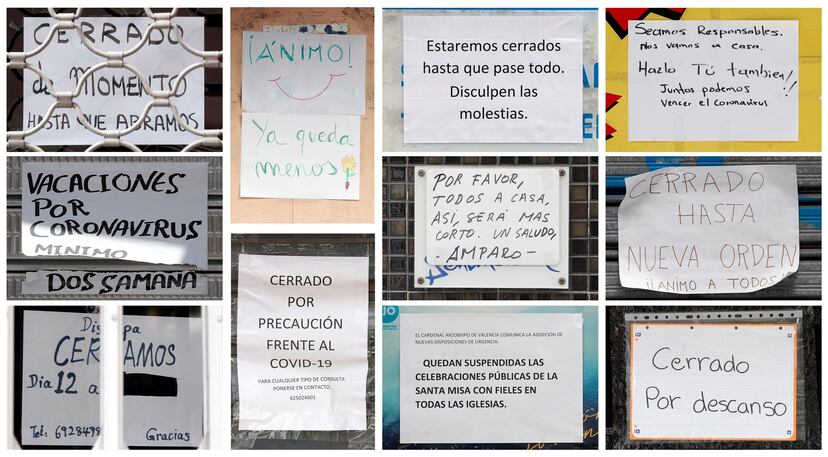 CERRADO
de MOMENTO
HASTA QUE ABRAMOS
VACACIONES
POR
CORONAVIRUS
MINIMO
DOS SAMANA
CERRAMOS
Dia 12 a
Tel: 6928498
Gracias
¡ÁNIMO!
Ya queda
menos
CERRADO
POR
PRECAUCIÓN
FRENTE AL
COVID-19
PARA CUALQUIER TIPO DE CONSULTA
PONERSE EN CONTACTO.
625024601
Estaremos cerrados
hasta que pase todo.
Disculpen las
molestias.
POR FAVOR,
TODOS A CASA,
ASÍ, SERÁ MAS
CORTO. UN SALUDO,
- AMPARO -
EL CARDENAL ARZOBISPO DE VALENCIA COMUNICA LA ADOPCIÓN DE
NUEVAS DISPOSICIONES DE URGENCIA:
QUEDAN SUSPENDIDAS LAS
CELEBRACIONES PÚBLICAS DE LA
SANTA MISA CON FIELES EN
TODAS LAS IGLESIAS.
Seamos Responsables.
Nos vamos a casa.
Hazlo Tú también!!
Juntos podemos
vencer el coronavirus
CERRADO
HASTA
NUEVA ORDEN
¡¡ANIMO A TODOS!
Cerrado
Por descanso